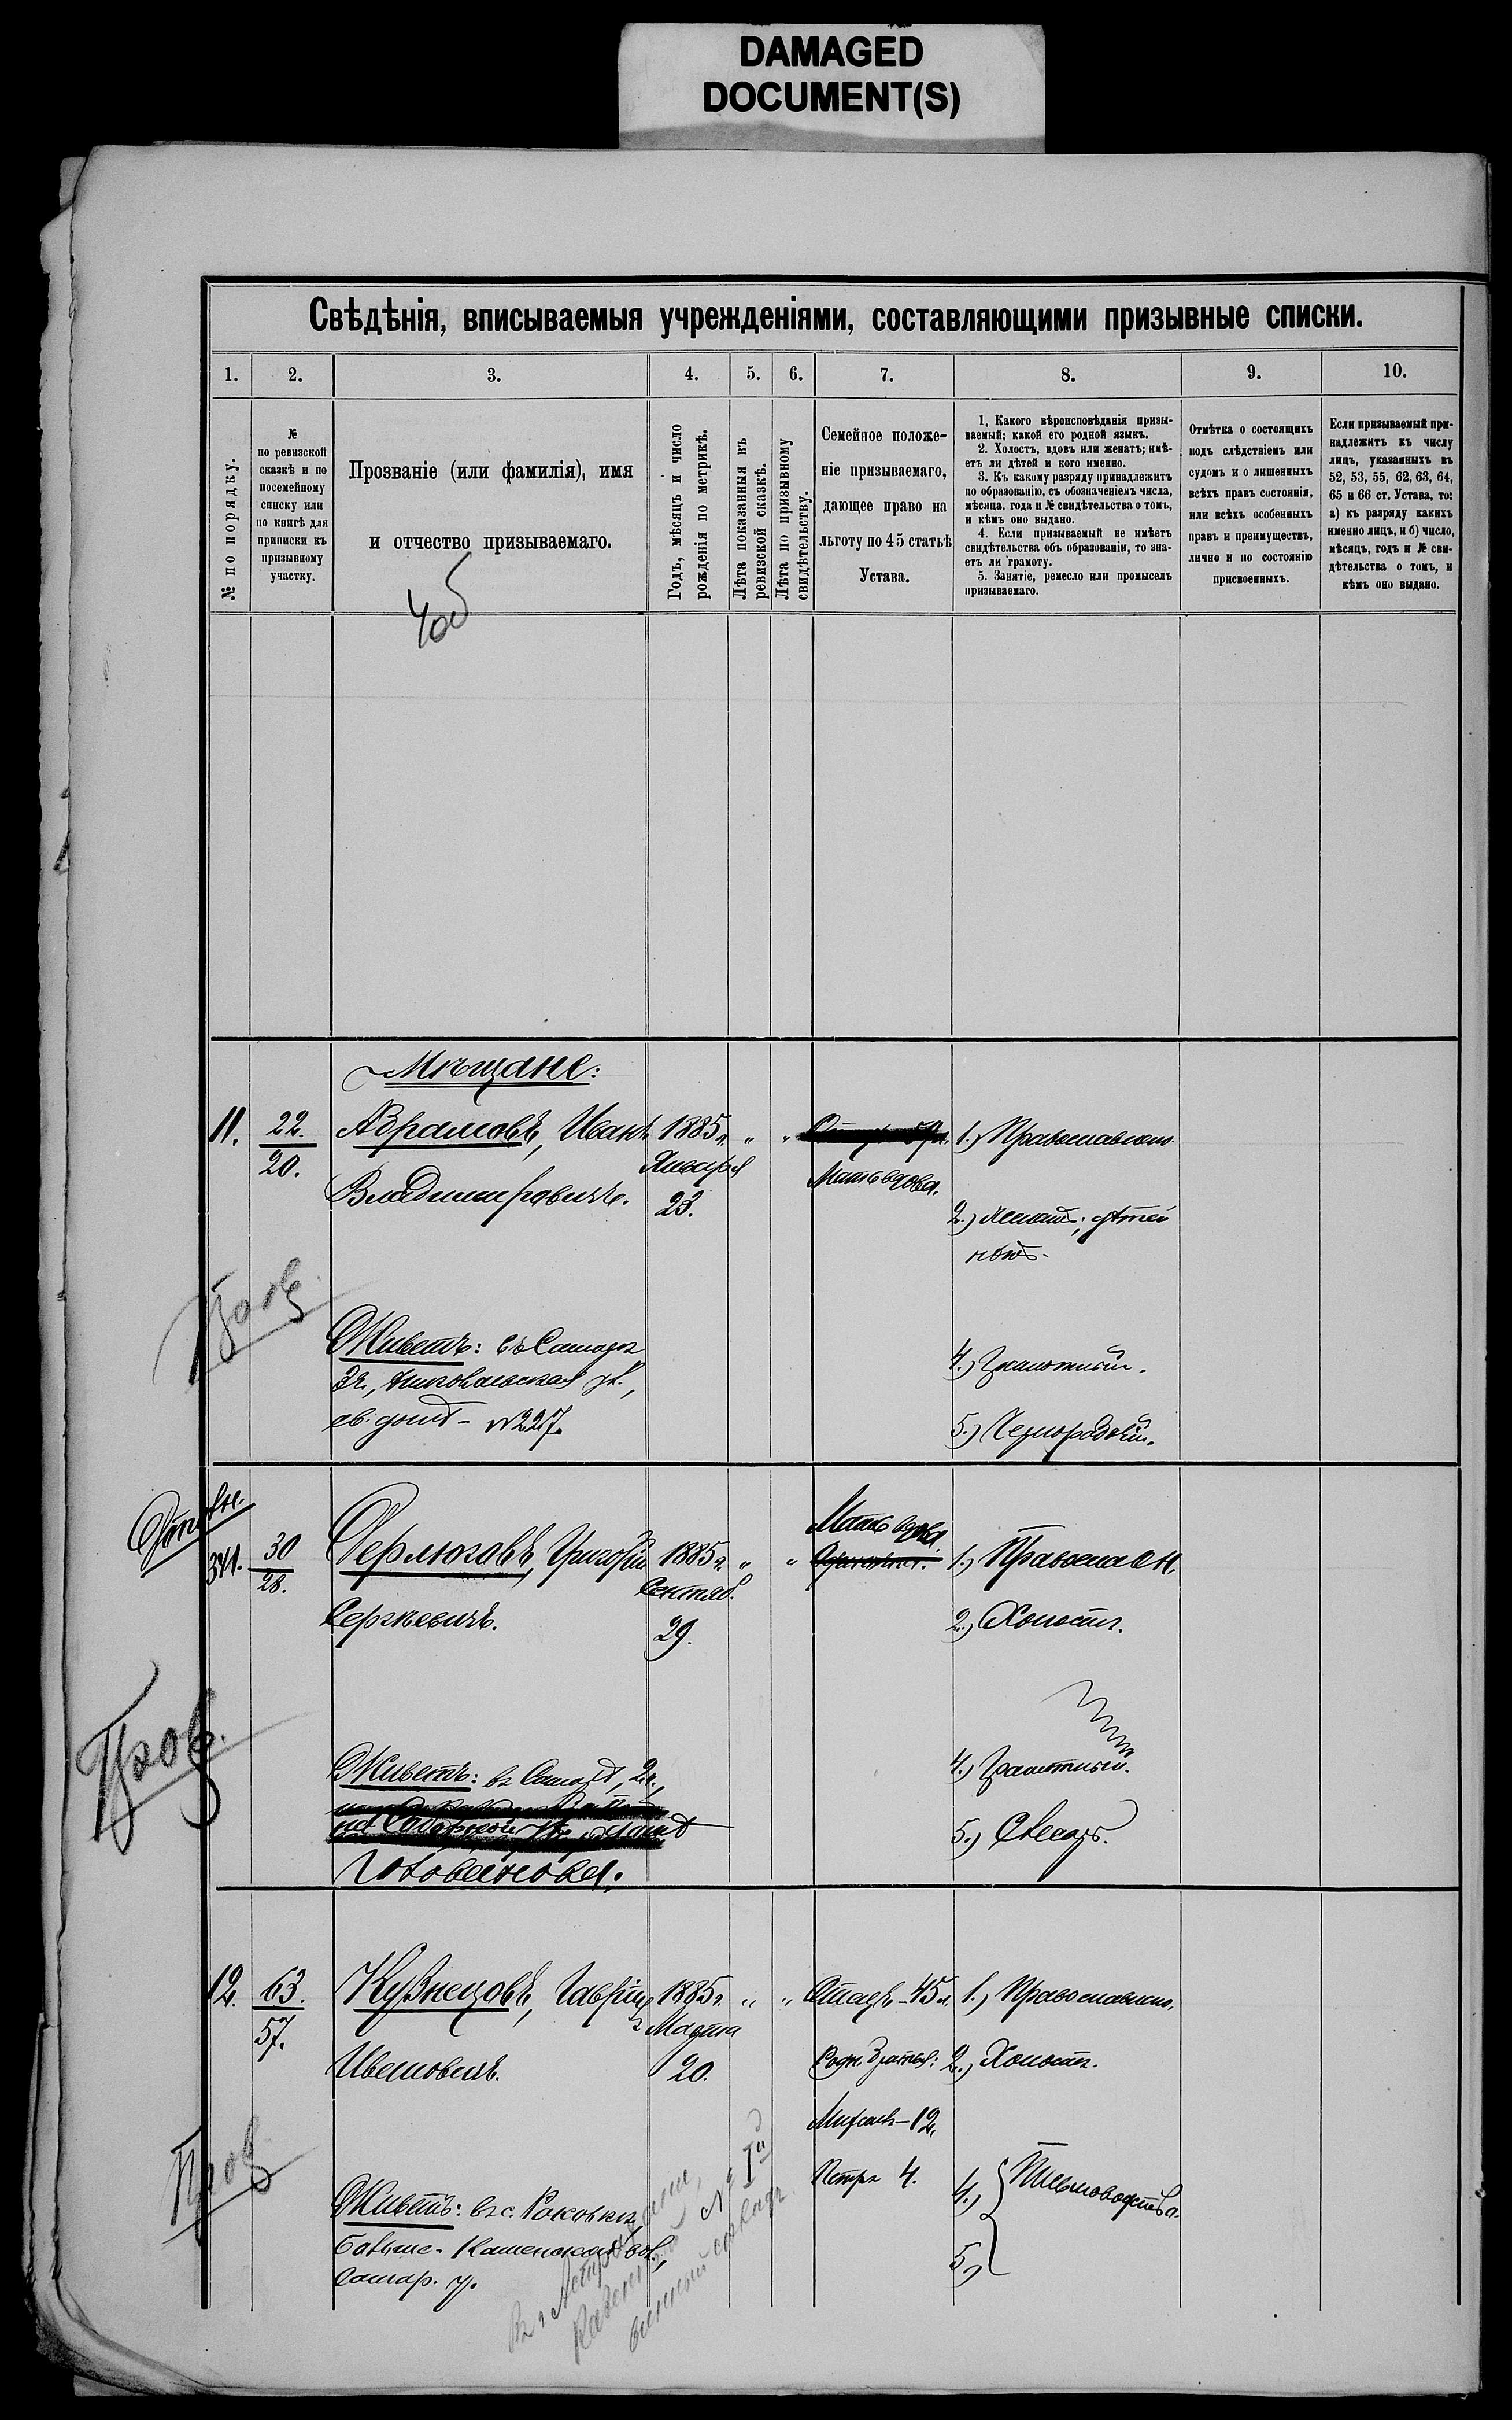 DAMAGED
DOCUMENT(S)
Свѣдѣнія, вписываемыя учрежденіями, составляющими призывные списки.
1. 2. 3. 4. 5. 6. 7. 8. 9. 10.
№ по порядку.
№
по ревизской
сказкѣ и по
посемейному
списку или
по книгѣ для
приписки къ
призывному
участку.
Прозваніе (или фамилія), имя
и отчество призываемаго.
Годъ, мѣсяцъ и число
рожденія по метрикѣ.
Лѣта показанныя въ
ревизской сказкѣ.
Лѣта по призывному
свидѣтельству.
Семейное положе-
ніе призываемаго,
дающее право на
льготу по 45 статьѣ
Устава.
1. Какого вѣроисповѣданія призы-
ваемый; какой его родной языкъ.
2. Холостъ, вдовъ или женатъ; имѣ-
етъ ли дѣтей и кого именно.
3. Къ какому разряду принадлежитъ
по образованію, съ обозначеніемъ числа,
мѣсяца, года и № свидѣтельства о томъ,
и кѣмъ оно выдано.
4. Если призываемый не имѣетъ
свидѣтельства объ образованіи, то зна-
етъ ли грамоту.
5. Занятіе, ремесло или промыселъ
призываемаго.
Отмѣтка о состоящихъ
подъ слѣдствіемъ или
судомъ и о лишенныхъ
всѣхъ правъ состоянія,
или всѣхъ особенныхъ
правъ и преимуществъ,
лично и по состоянію
присвоенныхъ.
Если призываемый при-
надлежитъ къ числу
лицъ, указанныхъ въ
52, 53, 55, 62, 63, 64,
65 и 66 ст. Устава, то:
а) къ разряду какихъ
именно лицъ, и б) число,
мѣсяцъ, годъ и № сви-
дѣтельства о томъ, и
кѣмъ оно выдано.
Мѣщане:
11. 22. Абрамовъ, Иванъ 1885 г. „ „ 1.) Православн.
20. Владиміровичъ. Января
23.
Мать вдова.
2.) Женатъ; дѣтей
нѣтъ.
Пров.
Живетъ: въ Самарѣ
2 ч., Николаевская ул.,
св. домъ - № 227.
4.) Грамотный.
5.) Чернорабочій.
341. 30 Ферлюговъ, Григорій 1885 г. „ „ Мать вдова. 1.) Православн.
28. Сергѣевичъ. Сентяб.
29.
2.) Холостъ.
Пров.
Живетъ: въ Самарѣ, 2 ч.,
4.) Грамотный.
5.) Слесарь.
12. 63. Кузнецовъ, Гавріилъ 1885 г. „ „ Отецъ - 45 л. 1.) Православн.
57. Ивановичъ. Марта
20.
Родн. братья: 2.) Холостъ.
Михаилъ - 12,
Петръ 4.
4.)
5.)
Письмоводства.
Пров
Живетъ: въ с. Раковкѣ,
Больше-Каменской вол.,
Самар. у.